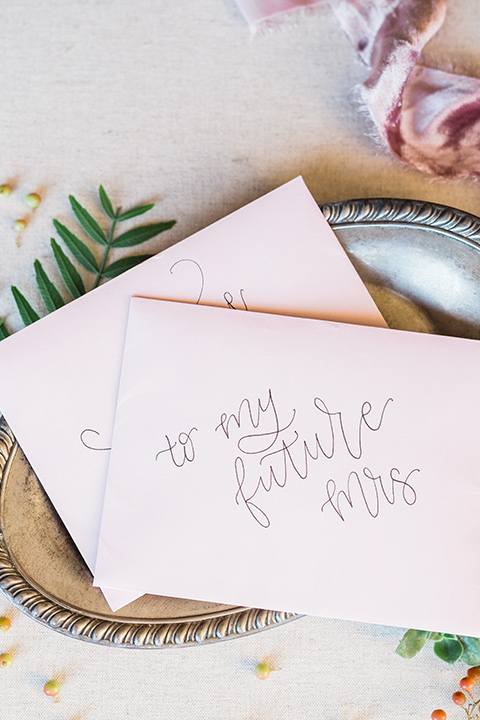 to my future
mrs